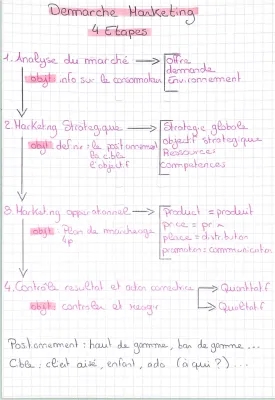 Demarche Marketing
4 Etapes
1. Analyse du marché → offre
demande
objt: info sur le consommateur Environnement
2. Marketing Strategique → Strategie globale
objt: definir: le positionnement objectif strategique
la cible Ressources
l'objectif compétences
3. Marketing opperationnel → product = produit
price = prix
objt: Plan de marchéage place = distribution
4p promotion = communication
4. Contrôle resultat et action correctrice → Quantitatif
objt: contrôler et reagir → Qualitatif
Positionnement: haut de gamme, bas de gamme ...
Cible: client aisé, enfant, ado (à qui?) ...